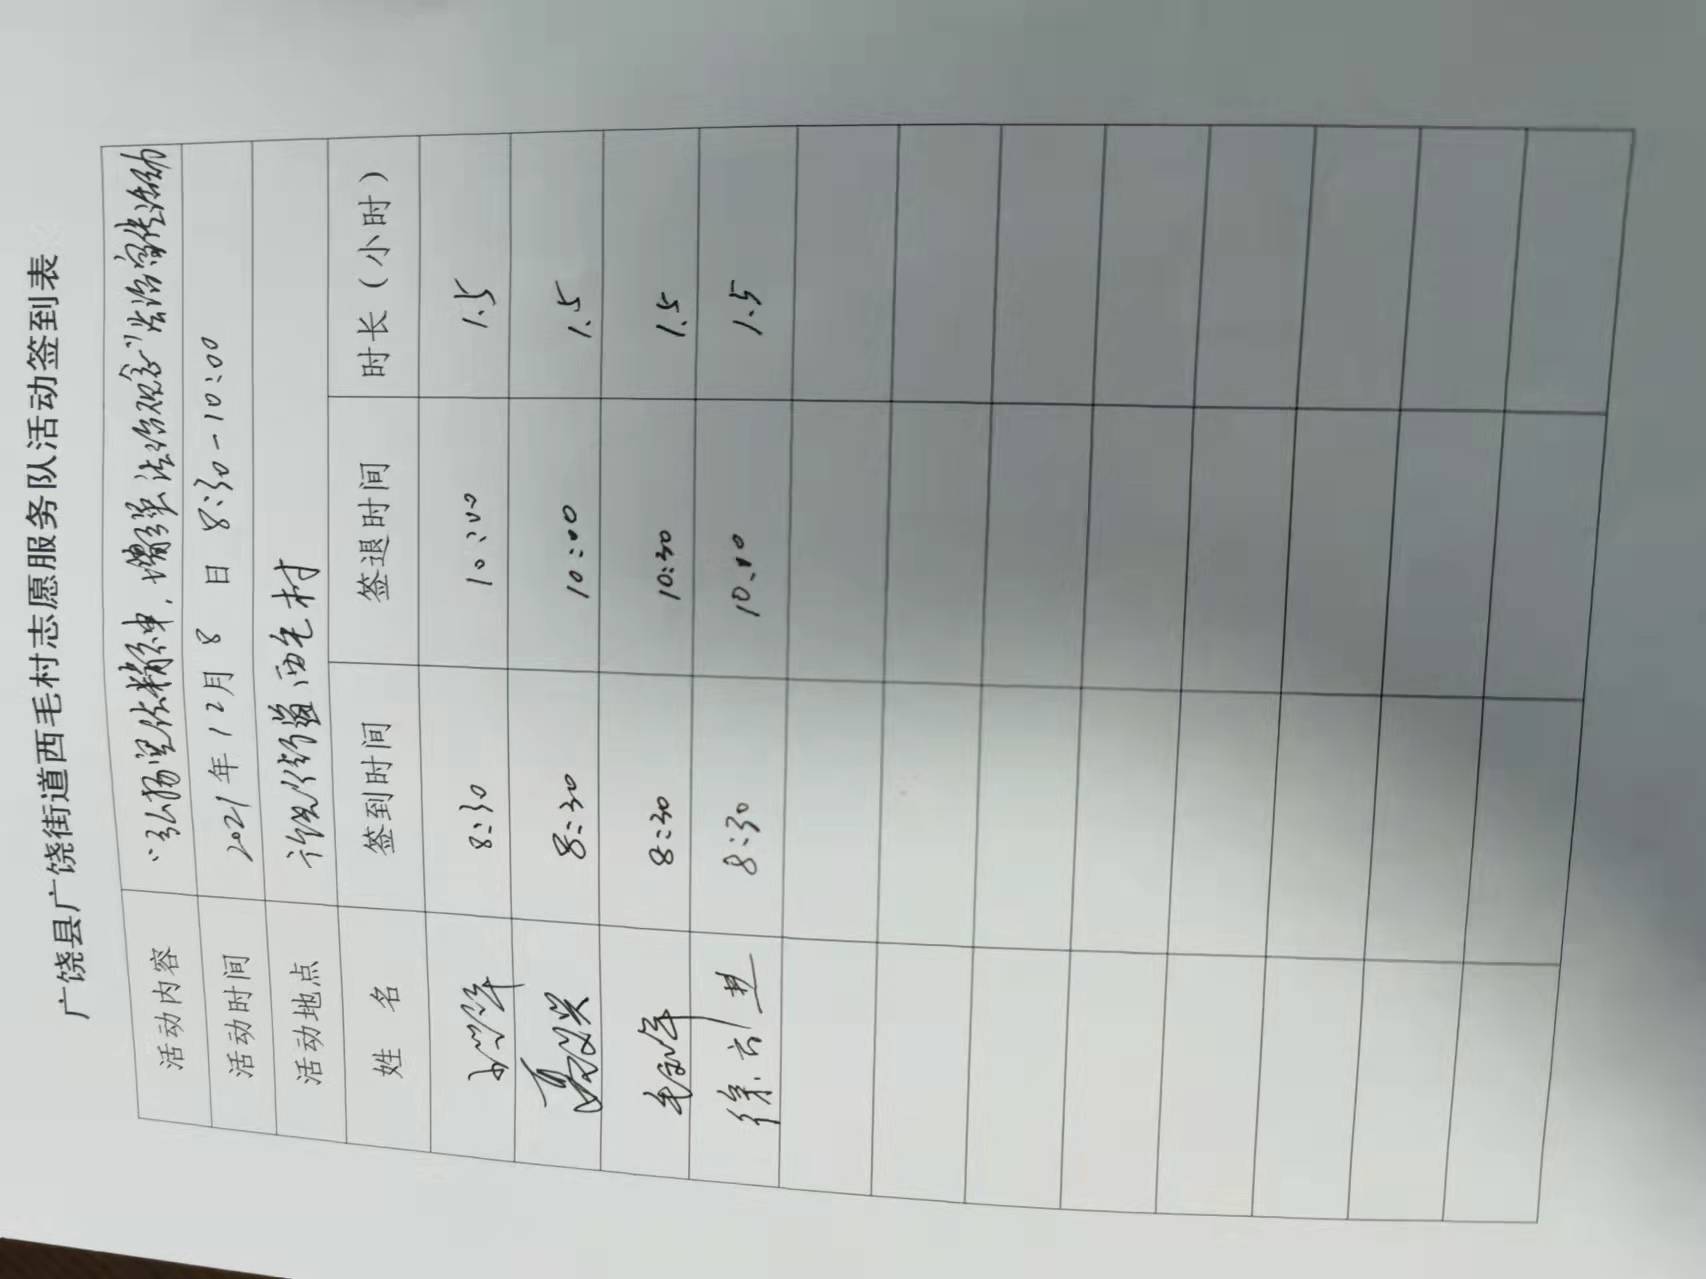 广饶县广饶街道西毛村志愿服务队活动签到表
活动内容 “弘扬宪法精神，增强法治观念”法治宣传活动
活动时间 2021年12月8日 8:30-10:00
活动地点 街道西毛村
姓 名 签到时间 签退时间 时长（小时）
8:30 10:00 1.5
8:30 10:00 1.5
毛 8:30 10:30 1.5
徐 8:30 1.5